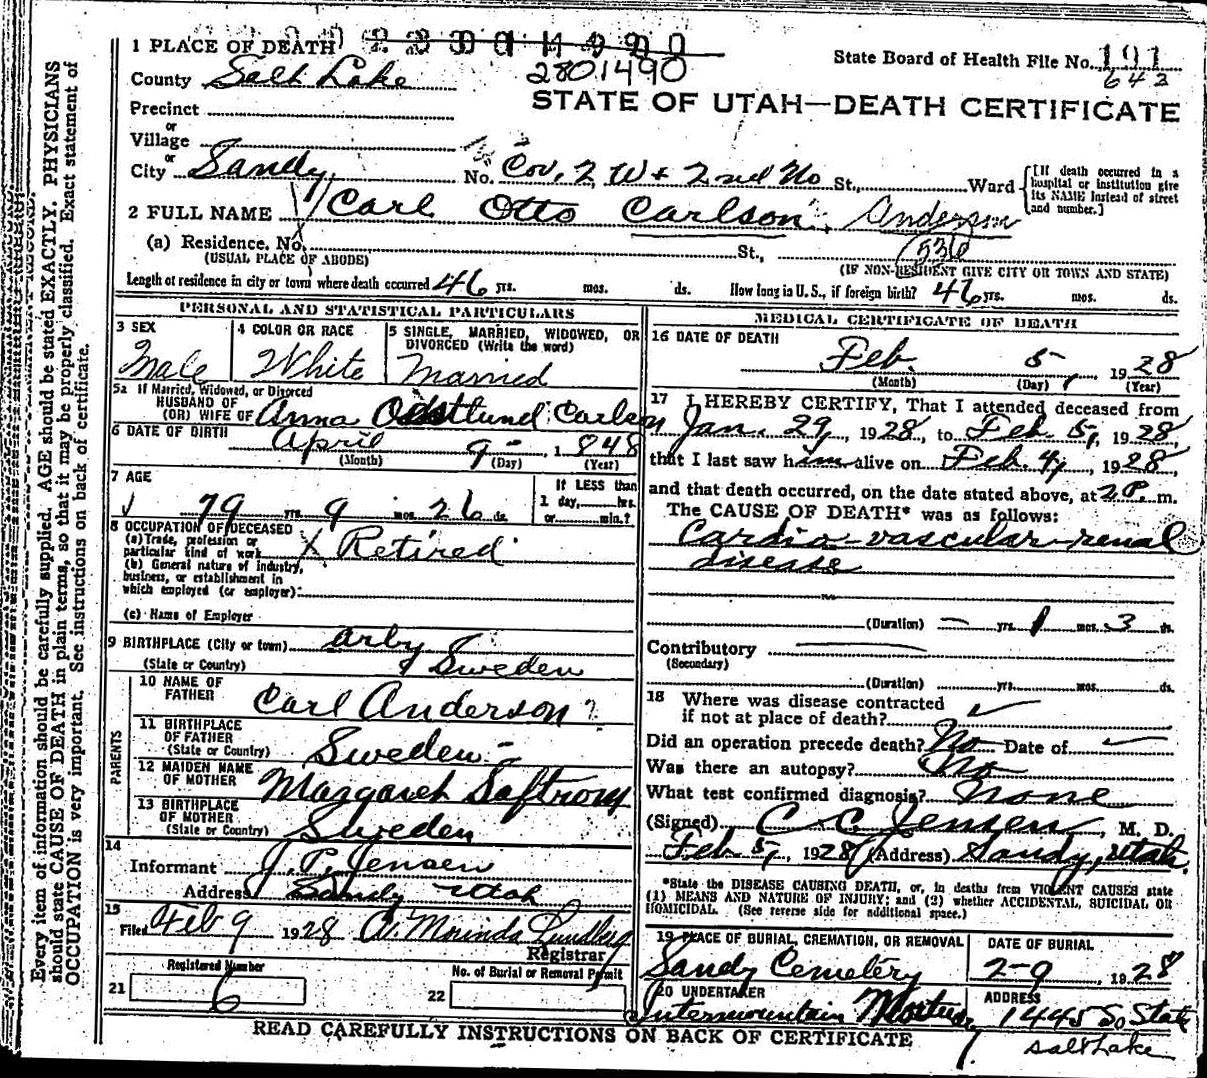 1 PLACE OF DEATH
2801490
State Board of Health File No. 191
642
County Salt Lake
STATE OF UTAH—DEATH CERTIFICATE
Precinct
or
Village
or
City Sandy, No. Cor. 2 W + 2nd No St., Ward
[If death occurred in a hospital or institution give its NAME instead of street and number.]
2 FULL NAME Carl Otto Carlson, Anderson
(a) Residence, No. St., 536
(USUAL PLACE OF ABODE) (IF NON-RESIDENT GIVE CITY OR TOWN AND STATE)
Length of residence in city or town where death occurred 46 yrs. mos. ds. How long in U. S., if foreign birth? 46 yrs. mos. ds.
PERSONAL AND STATISTICAL PARTICULARS
3 SEX Male
4 COLOR OR RACE White
5 SINGLE, MARRIED, WIDOWED, OR DIVORCED (Write the word) Married
5a If Married, Widowed, or Divorced
HUSBAND OF
(OR) WIFE OF Anna Ostlund Carlson
6 DATE OF BIRTH April 9 - , 1848
(Month) (Day) (Year)
7 AGE
79 yrs. 9 mos. 26 ds.
If LESS than
1 day, hrs.
or min.?
8 OCCUPATION OF DECEASED
(a) Trade, profession or
particular kind of work X Retired
(b) General nature of industry,
business, or establishment in
which employed (or employer):
(c) Name of Employer
9 BIRTHPLACE (City or town) Arby
(State or Country) Sweden
PARENTS
10 NAME OF
FATHER Carl Anderson ?
11 BIRTHPLACE
OF FATHER
(State or Country) Sweden -
12 MAIDEN NAME
OF MOTHER Margaret Saftrom
13 BIRTHPLACE
OF MOTHER
(State or Country) Sweden
14
Informant J. P. Jensen
Address Sandy Utah
15
Filed Feb 9 1928 A. Morinda Lundberg
Registrar
Registered Number
21 6
No. of Burial or Removal Permit
22
MEDICAL CERTIFICATE OF DEATH
16 DATE OF DEATH
Feb. 5, 1928
(Month) (Day) (Year)
17 I HEREBY CERTIFY, That I attended deceased from
Jan. 29, 1928, to Feb 5, 1928,
that I last saw him alive on Feb. 4, 1928,
and that death occurred, on the date stated above, at 2 P. m.
The CAUSE OF DEATH* was as follows:
Cardio-vascular-renal
disease
(Duration) — yrs. 1 mos. 3 ds.
Contributory
(Secondary)
(Duration) yrs. mos. ds.
18 Where was disease contracted
if not at place of death?
Did an operation precede death? No Date of
Was there an autopsy? No
What test confirmed diagnosis? None
(Signed) C. C. Jensen, M. D.
Feb 5, 1928 (Address) Sandy, Utah.
*State the DISEASE CAUSING DEATH, or, in deaths from VIOLENT CAUSES state
(1) MEANS AND NATURE OF INJURY; and (2) whether ACCIDENTAL, SUICIDAL OR
HOMICIDAL. (See reverse side for additional space.)
19 PLACE OF BURIAL, CREMATION, OR REMOVAL
Sandy Cemetery
DATE OF BURIAL
2-9 1928
20 UNDERTAKER
Intermountain Mortuary
ADDRESS
1445 So State
Salt Lake
READ CAREFULLY INSTRUCTIONS ON BACK OF CERTIFICATE
Every item of information should be carefully supplied. AGE should be stated EXACTLY. PHYSICIANS
should state CAUSE OF DEATH in plain terms, so that it may be properly classified. Exact statement of
OCCUPATION is very important. See instructions on back of certificate.